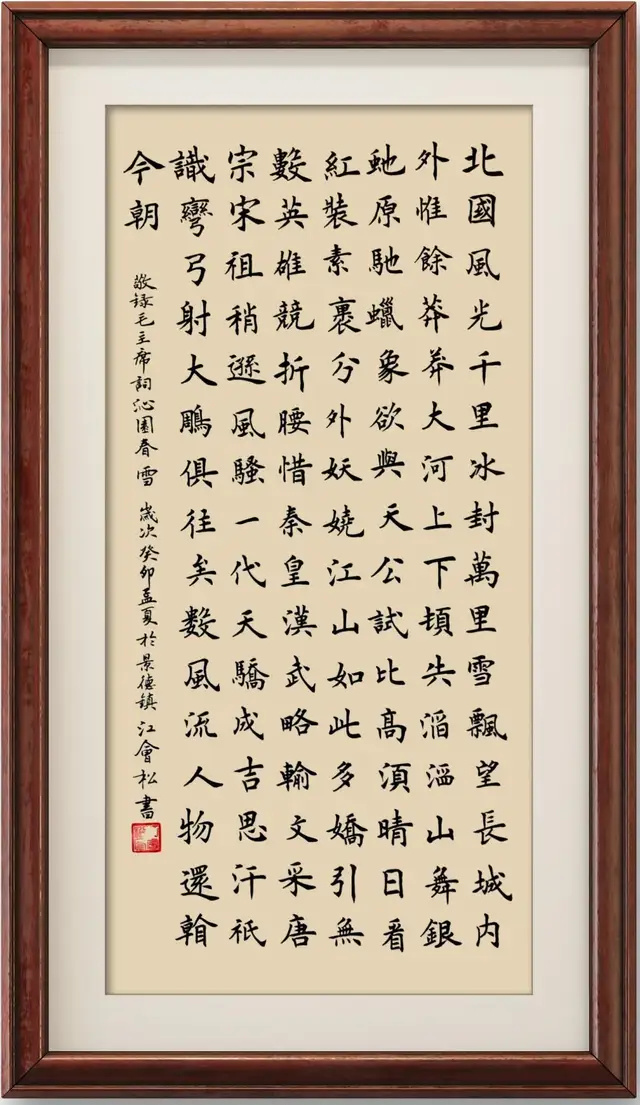 北國風光千里冰封萬里雪飄望長城内
外惟餘莽莽大河上下頓失滔滔山舞銀
虵原馳蠟象欲與天公試比高須晴日看
紅裝素裹分外妖嬈江山如此多嬌引無
數英雄競折腰惜秦皇漢武略輸文采唐
宗宋祖稍遜風騷一代天驕成吉思汗祇
識彎弓射大鵰俱往矣數風流人物還
今朝
敬録毛主席詞沁園春雪 歲次癸卯孟夏於景德鎮 江會松書